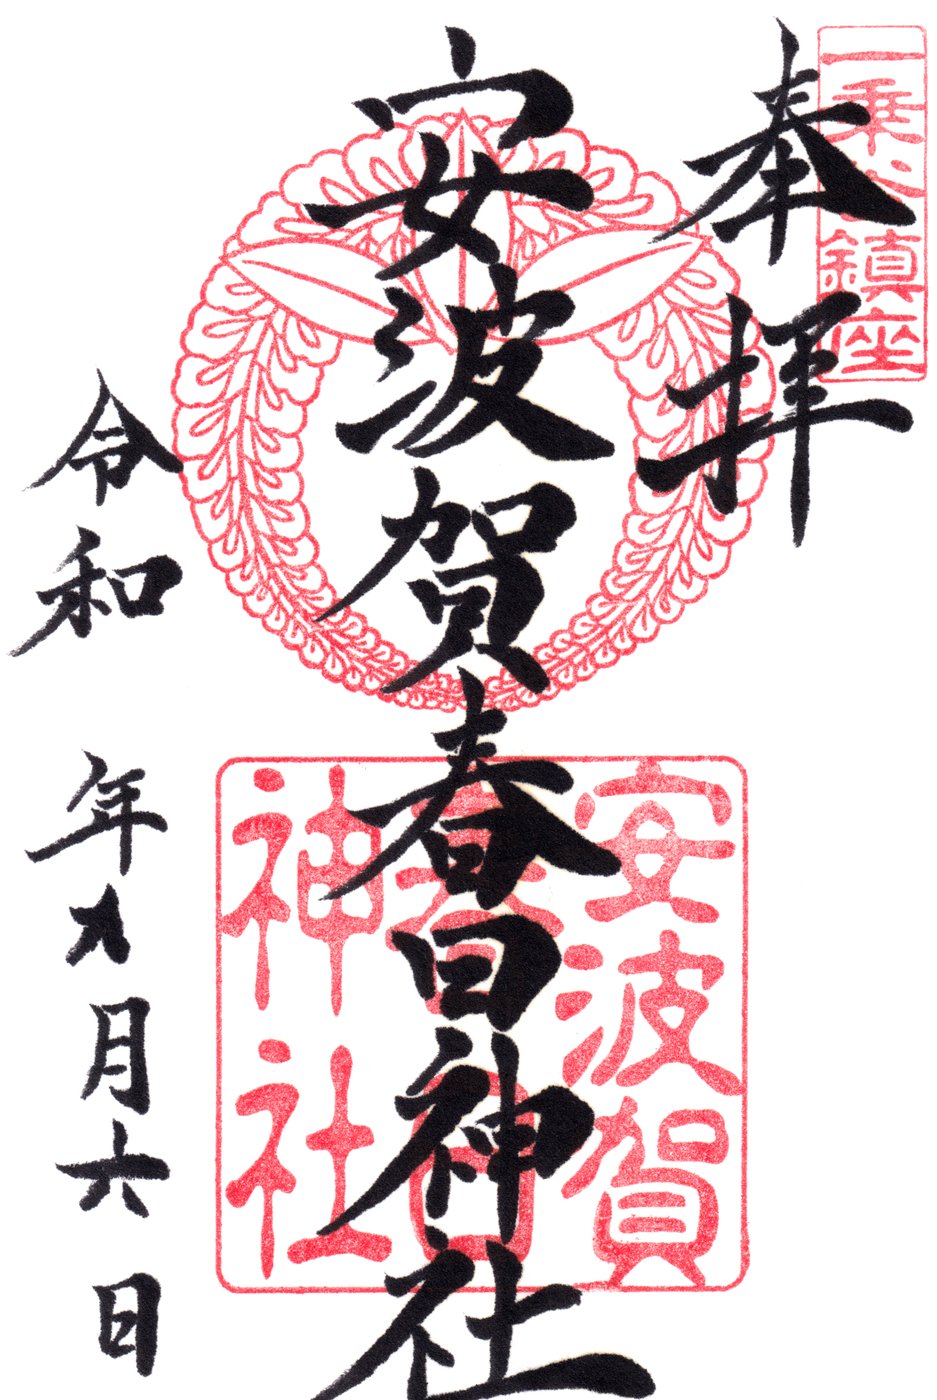 一乗谷鎮座
奉拝
安波賀春日神社
安波賀
春日
神社
令和 年九月六日